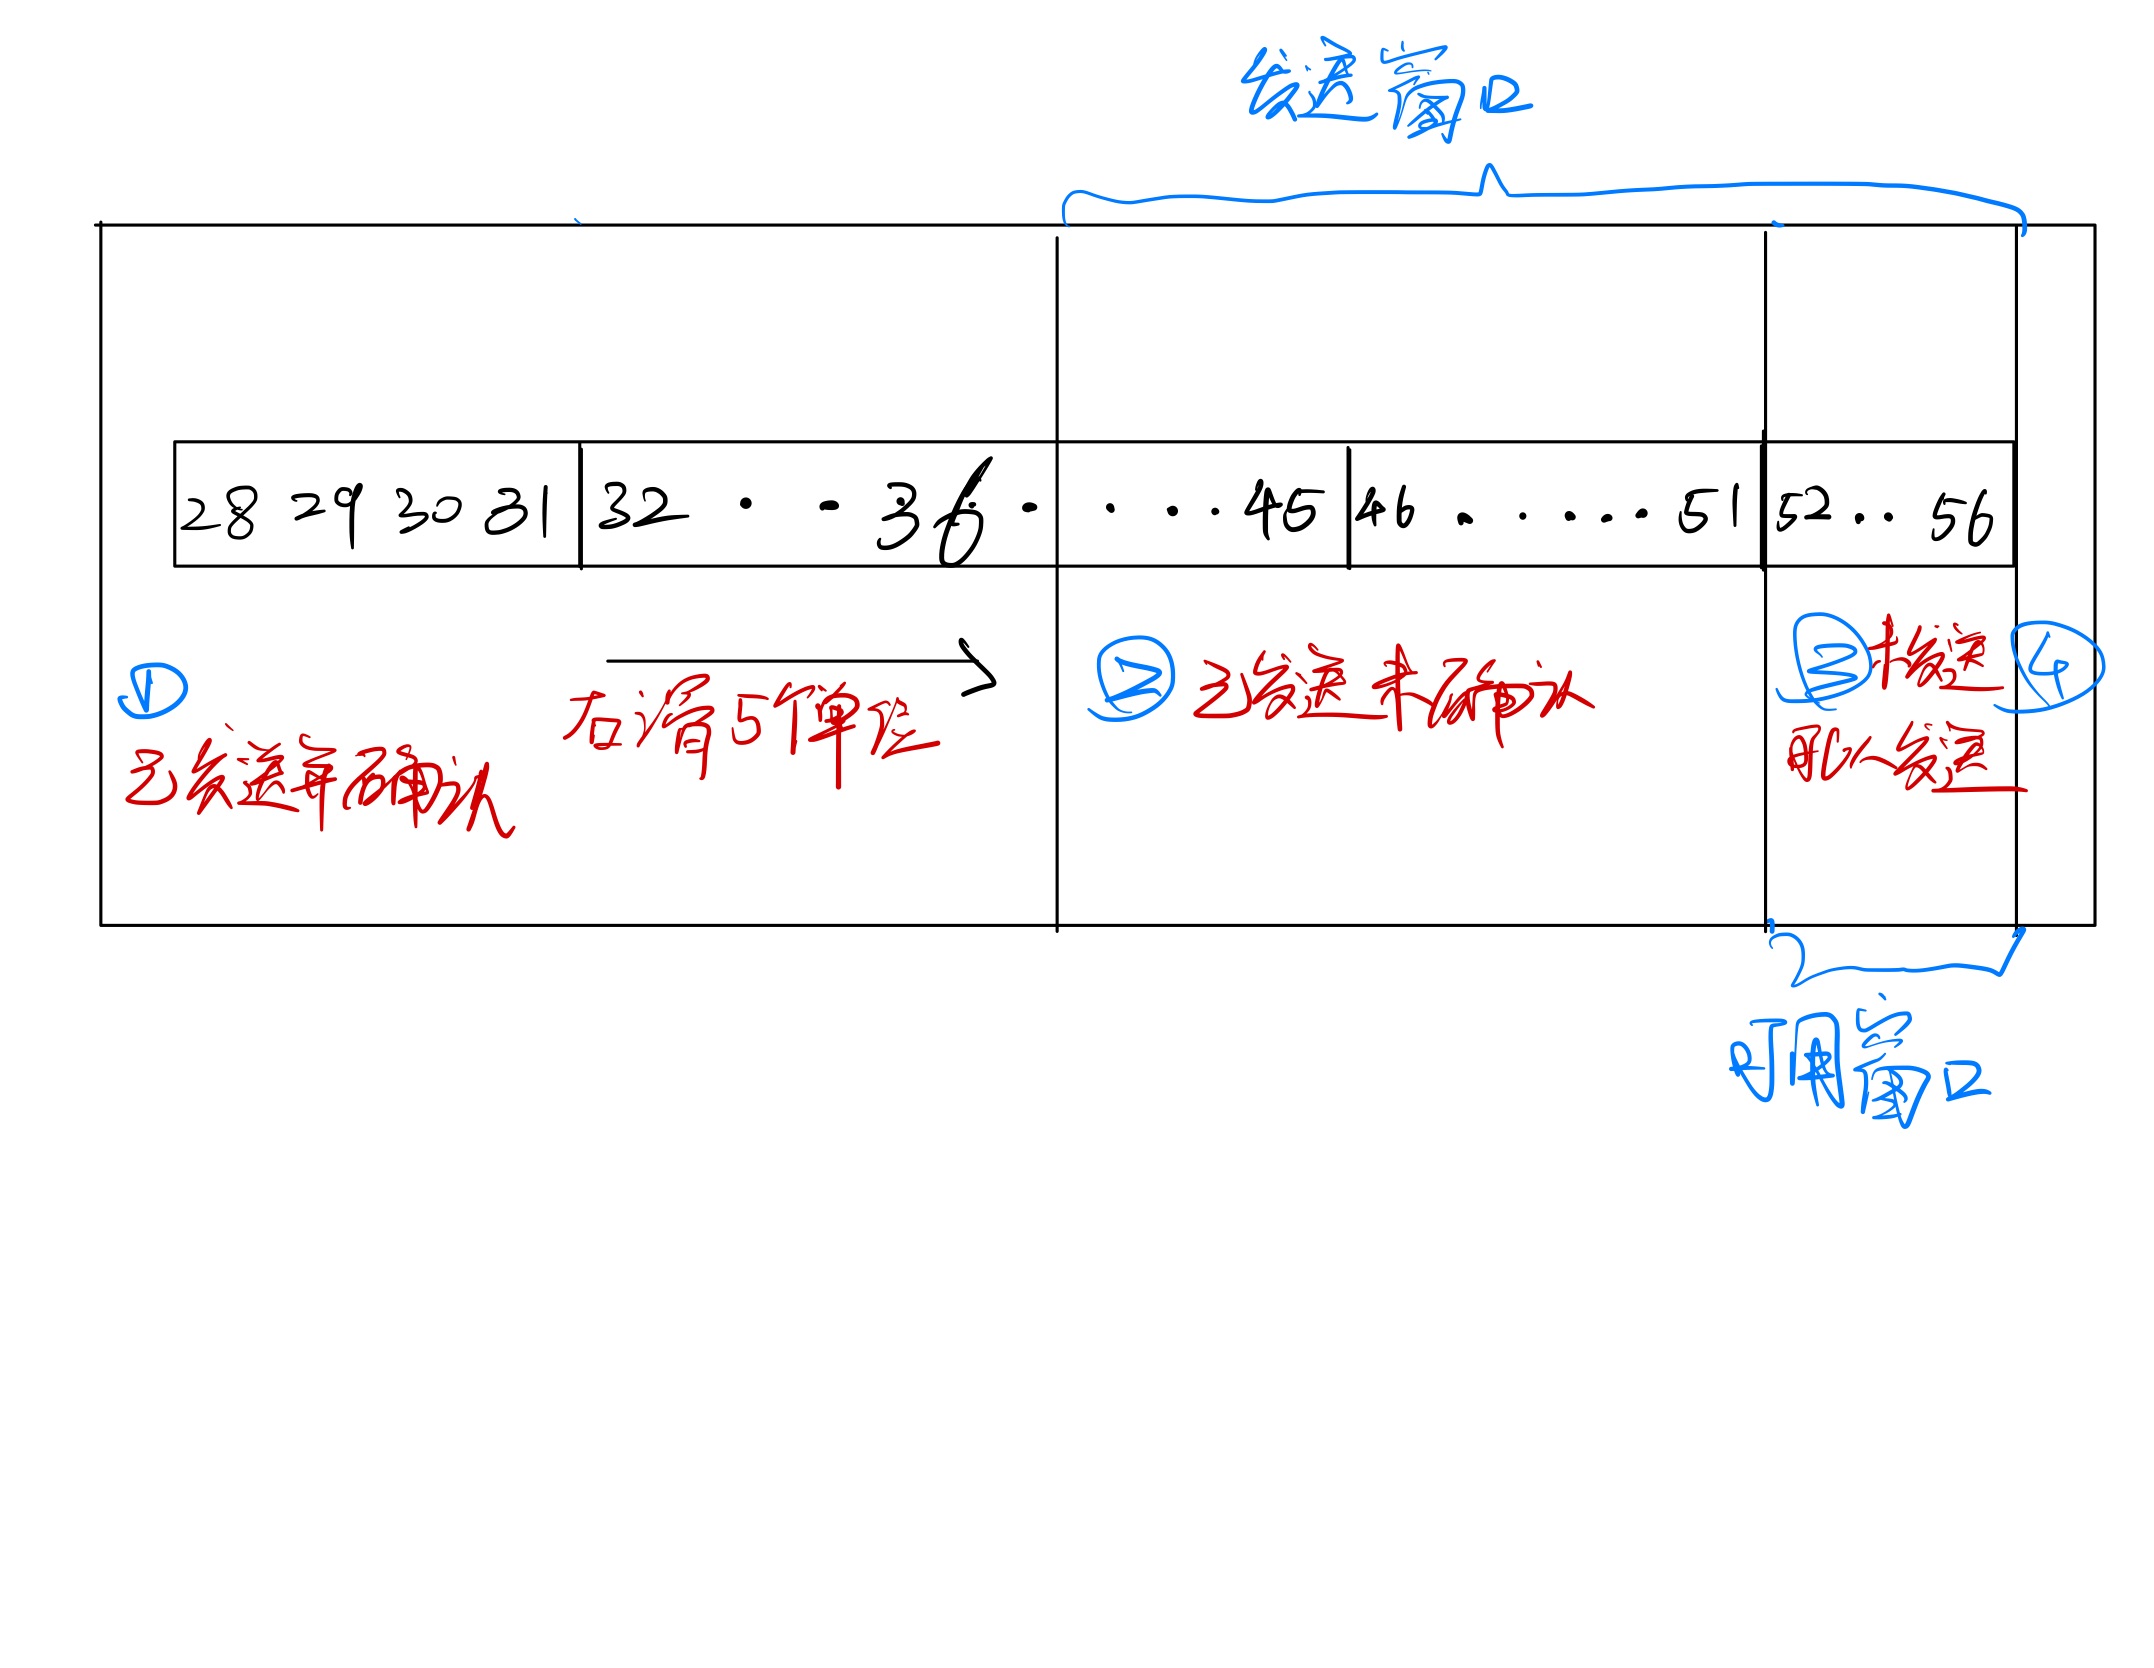 发送窗口
28 29 30 31 32 · · 36 · · · · 45 46 · · · · · 51 52 · · 56
① ② ③ ④
已发送并确认
右滑5个单位
已发送未确认
未发送
可以发送
可用窗口